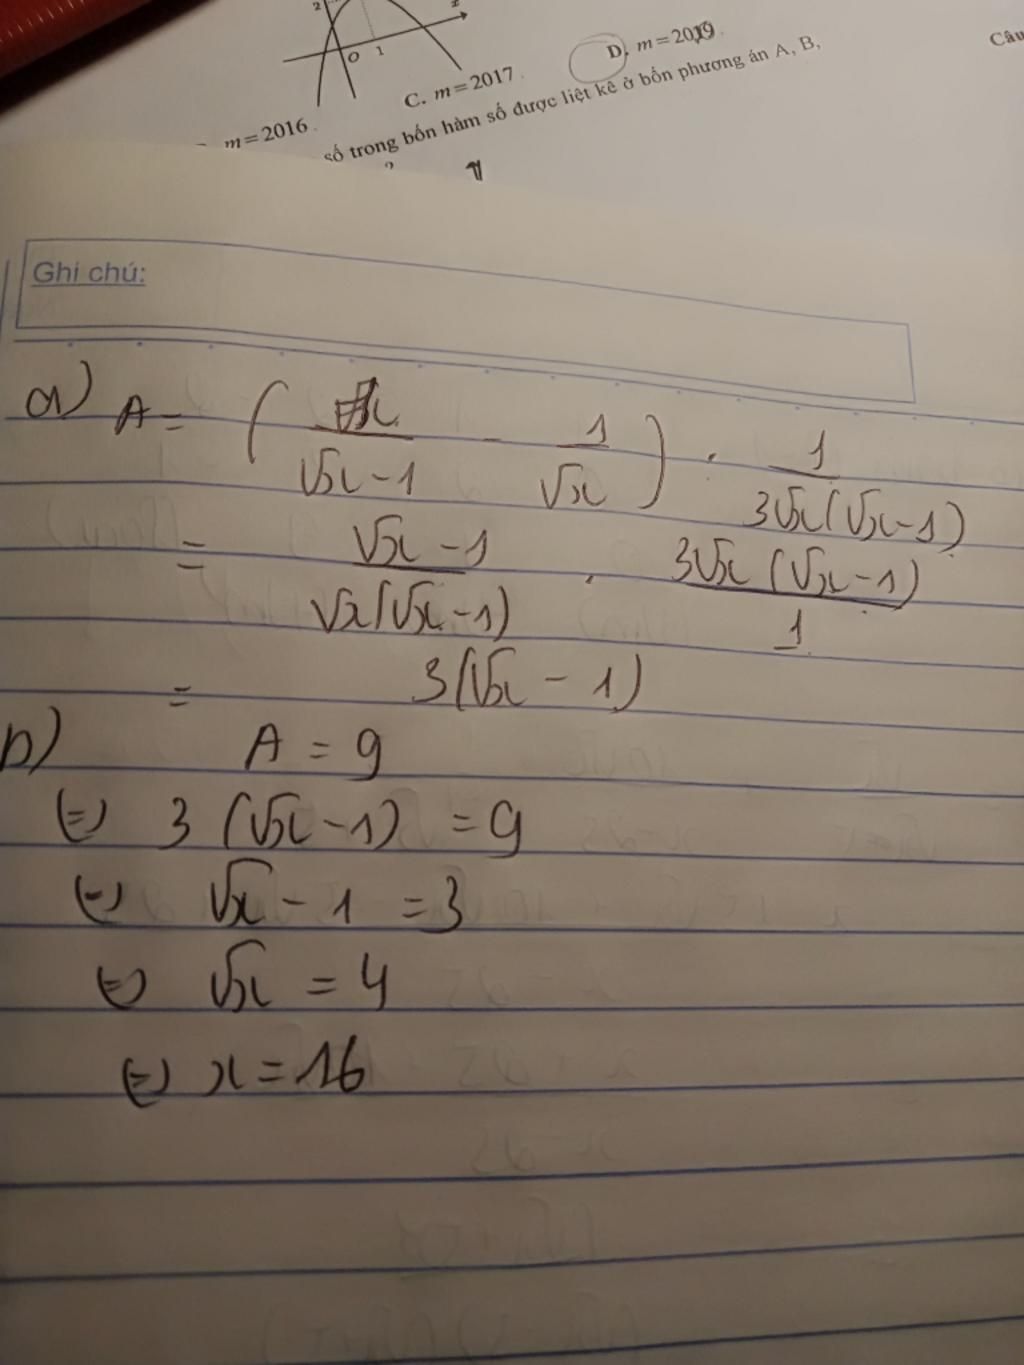 2
x
O
1
m = 2016
C. m = 2017
D. m = 2019
Câu
số trong bốn hàm số được liệt kê ở bốn phương án A, B,
Ghi chú:
a) A = ( x/(√x - 1) - 1/√x ) : 1/(3√x(√x - 1))
= (√x - 1)/(√x(√x - 1)) . 3√x(√x - 1)/1
= 3(√x - 1)
b) A = 9
(=) 3 (√x - 1) = 9
(=) √x - 1 = 3
(=) √x = 4
(=) x = 16